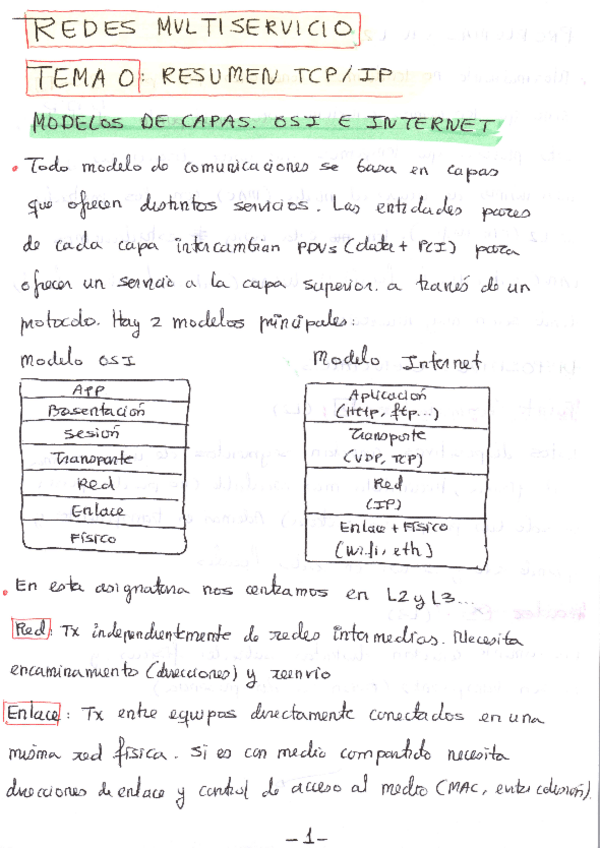 REDES MULTISERVICIO
TEMA 0: RESUMEN TCP/IP
MODELOS DE CAPAS. OSI E INTERNET
• Todo modelo de comunicaciones se basa en capas
que ofrecen distintos servicios. Las entidades pares
de cada capa intercambian PDUs (data + PCI) para
ofrecer un servicio a la capa superior. a través de un
protocolo. Hay 2 modelos principales:
modelo OSI
APP
Presentación
Sesión
Transporte
Red
Enlace
Físico
Modelo Internet
Aplicación
(Http, ftp...)
Transporte
(UDP, TCP)
Red
(IP)
Enlace + Físico
(Wifi, eth)
• En esta asignatura nos centramos en L2 y L3...
Red: Tx independientemente de redes intermedias. Necesita
encaminamiento (direcciones) y reenvío
Enlace: Tx entre equipos directamente conectados en una
misma red física. Si es con medio compartido necesita
direcciones de enlace y control de acceso al medio (MAC, evitar colisión).
-1-